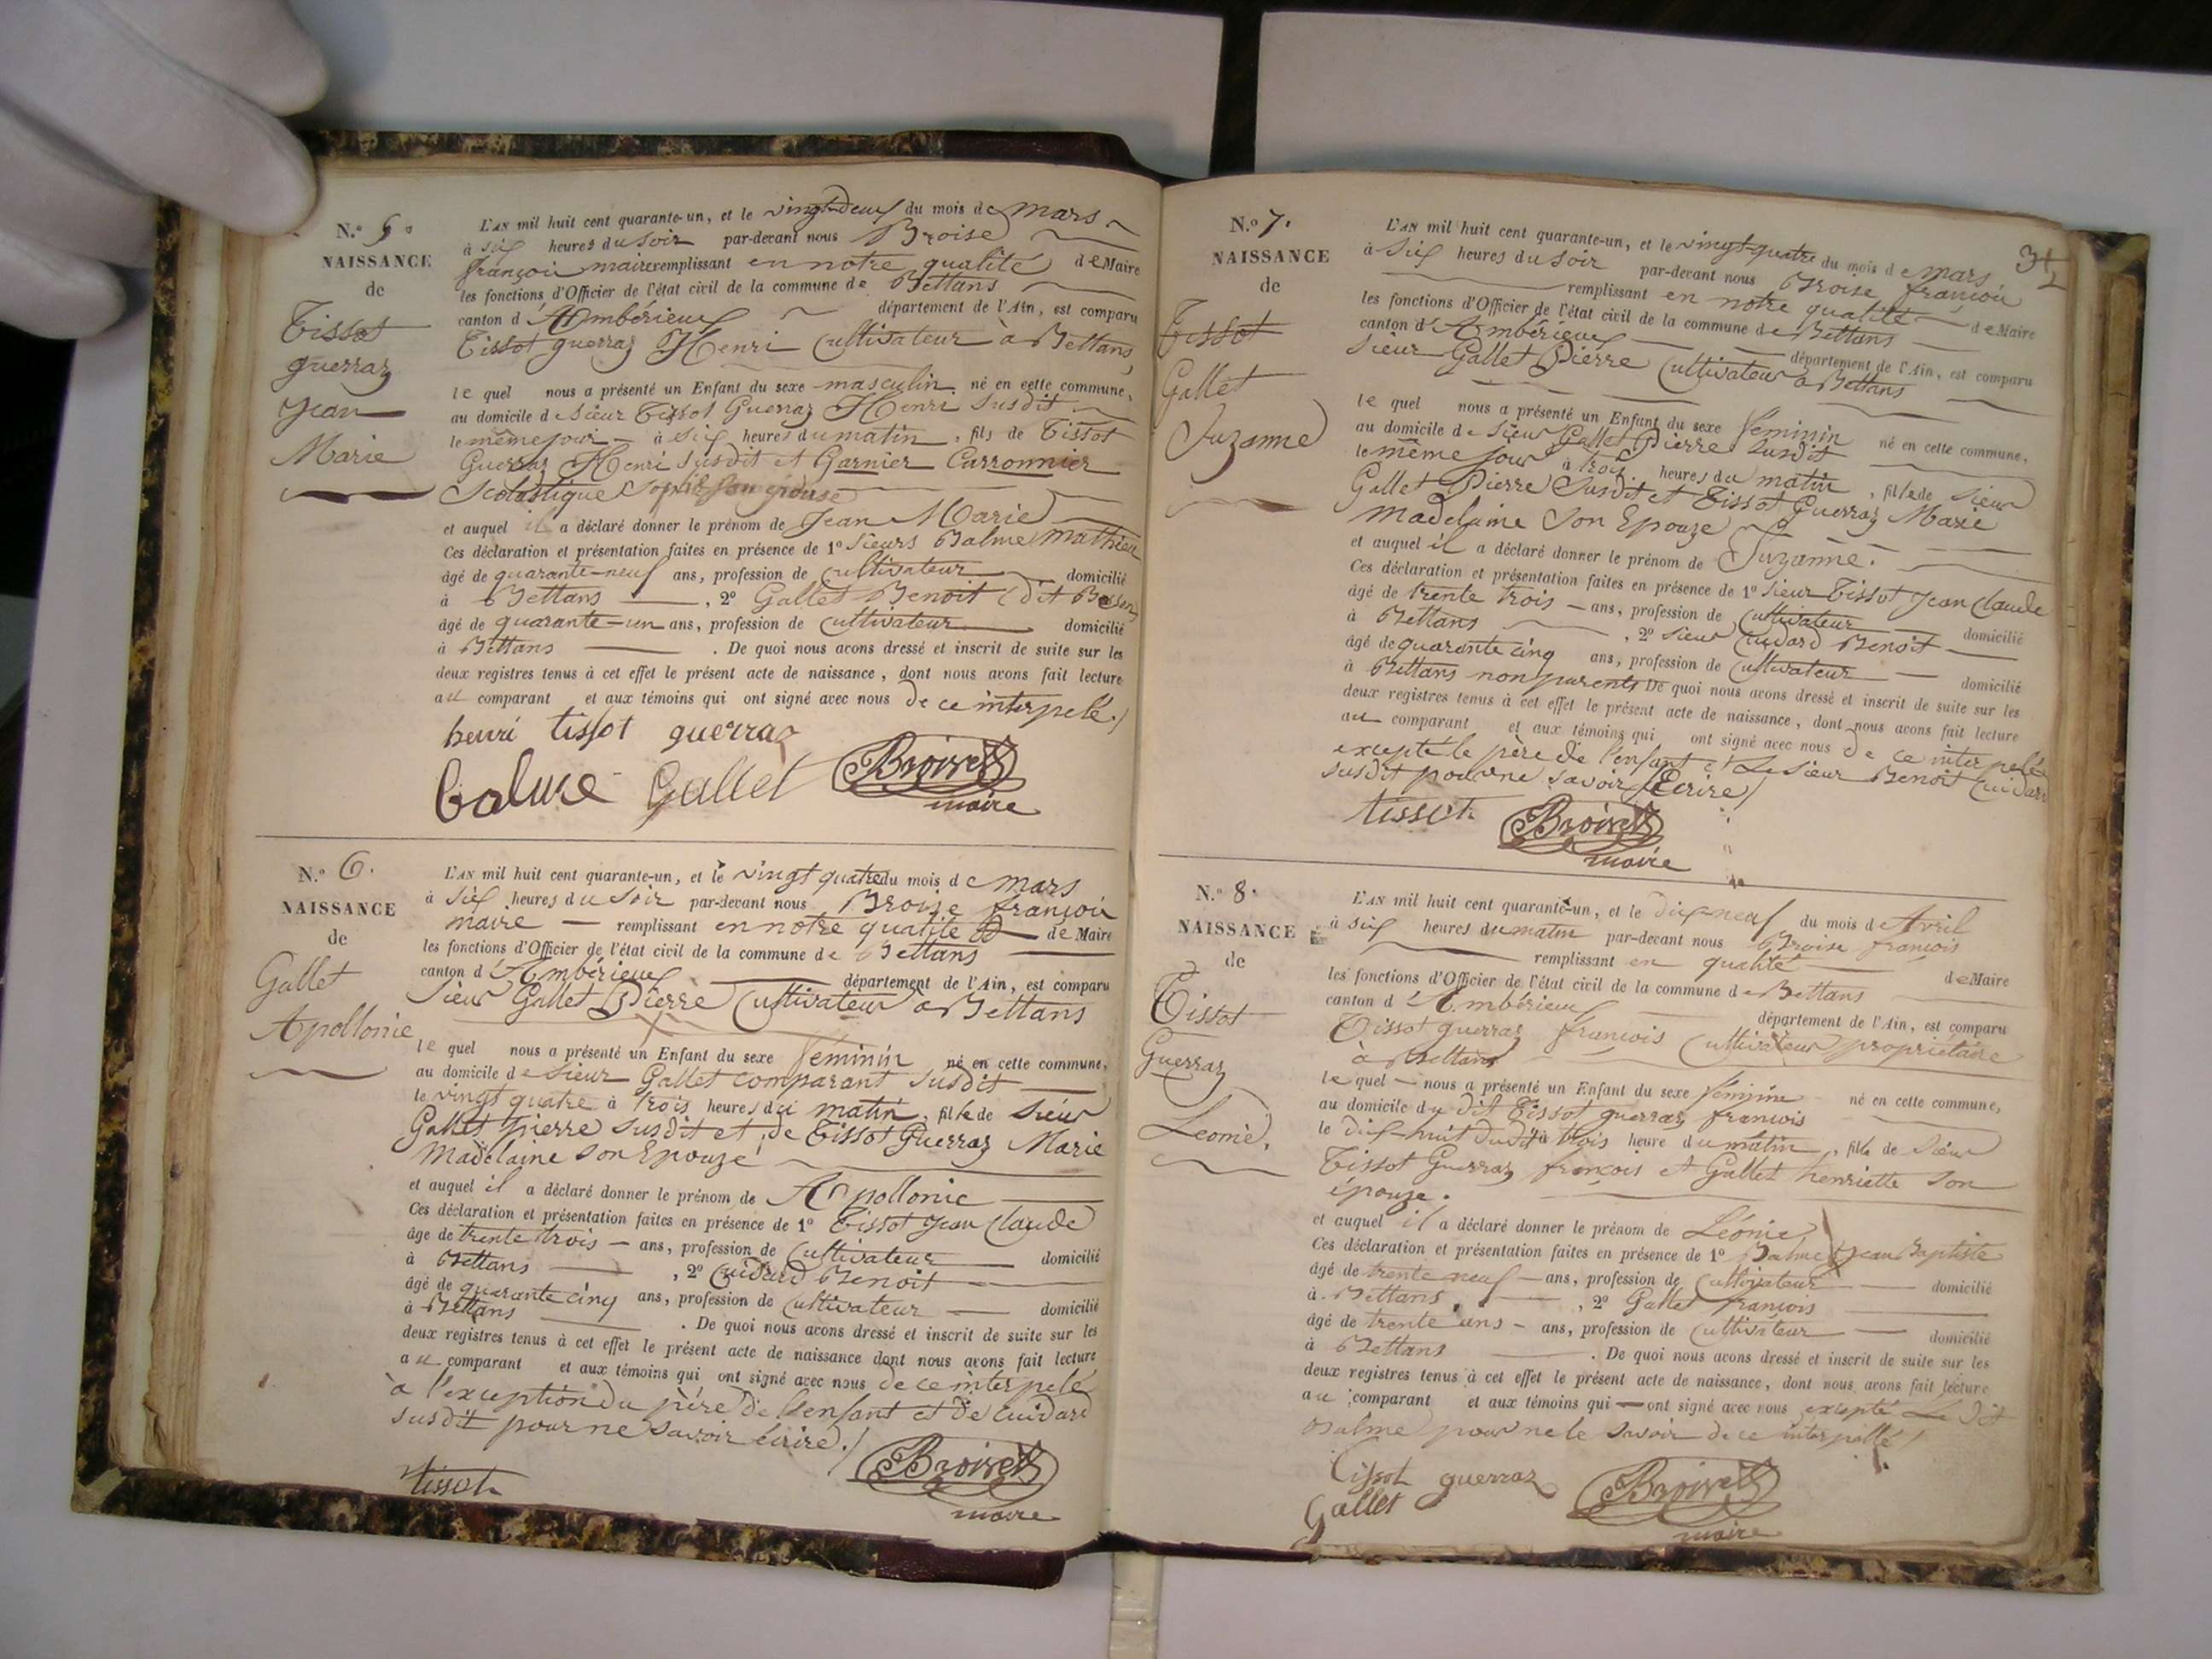 N.o 5.
NAISSANCE
de
Tissot
guerraz
Jean
Marie
L'AN mil huit cent quarante-un, et le vingt-deux du mois de mars
à six heures du soir par-devant nous Broise
françois maire remplissant en notre qualité de Maire
les fonctions d'Officier de l'état civil de la commune de Bettans
canton d'Ambérieux département de l'Ain, est comparu
Tissot guerraz Henri Cultivateur à Bettans
le quel nous a présenté un Enfant du sexe masculin né en cette commune,
au domicile de sieur Tissot Guerraz Henri susdit
le même jour à six heures du matin, fils de Tissot
Guerraz Henri susdit et Garnier Carronnier
Scolastique son épouse
et auquel il a déclaré donner le prénom de Jean Marie
Ces déclaration et présentation faites en présence de 1o Sieurs Balme Mathieu
âgé de quarante-neuf ans, profession de Cultivateur domicilié
à Bettans, 2o Gallet Benoit (dit
âgé de quarante-un ans, profession de Cultivateur domicilié
à Bettans. De quoi nous avons dressé et inscrit de suite sur les
deux registres tenus à cet effet le présent acte de naissance, dont nous avons fait lecture
au comparant et aux témoins qui ont signé avec nous de ce interpelé./
henri tissot guerraz
balme Gallet Broise
maire
N.o 6.
NAISSANCE
de
Gallet
Apollonie
L'AN mil huit cent quarante-un, et le vingt quatre du mois de mars
à six heures du soir par-devant nous Broise françois
maire remplissant en notre qualité de Maire
les fonctions d'Officier de l'état civil de la commune de Bettans
canton d'Ambérieux département de l'Ain, est comparu
Sieur Gallet Pierre Cultivateur a Bettans
le quel nous a présenté un Enfant du sexe féminin né en cette commune,
au domicile de sieur Gallet comparant susdit
le vingt quatre à trois heures du matin, fille de sieur
Gallet pierre susdit et de Tissot Guerraz Marie
Madelaine son Epouze
et auquel il a déclaré donner le prénom de Apollonie
Ces déclaration et présentation faites en présence de 1o Tissot Jean Claude
âge de trente trois ans, profession de Cultivateur domicilié
à Bettans, 2o Cuidard Benoit
âgé de quarante cinq ans, profession de Cultivateur domicilié
à Bettans. De quoi nous avons dressé et inscrit de suite sur les
deux registres tenus à cet effet le présent acte de naissance dont nous avons fait lecture
au comparant et aux témoins qui ont signé avec nous de ce interpelé
à l'exception du père de l'enfant et de Cuidard
susdit pour ne savoir écrire./
tissot Broise
maire
N.o 7.
NAISSANCE
de
Tissot
Gallet
Suzanne
L'AN mil huit cent quarante-un, et le vingt quatre du mois de mars
à six heures du soir par-devant nous Broise françois
remplissant en notre qualité de Maire
les fonctions d'Officier de l'état civil de la commune de Bettans
canton d'Ambérieux département de l'Ain, est comparu
Sieur Gallet Pierre Cultivateur a Bettans
le quel nous a présenté un Enfant du sexe féminin né en cette commune,
au domicile de sieur Gallet Pierre susdit
le même jour à trois heures du matin, fille de sieur
Gallet Pierre susdit et Tissot Guerraz Marie
Madelaine son Epouze
et auquel il a déclaré donner le prénom de Suzanne.
Ces déclaration et présentation faites en présence de 1o Sieur Tissot Jean Claude
âgé de trente trois ans, profession de Cultivateur domicilié
à Bettans, 2o sieur Cuidard Benoit
âgé de quarante cinq ans, profession de Cultivateur domicilié
à Bettans non parents De quoi nous avons dressé et inscrit de suite sur les
deux registres tenus à cet effet le présent acte de naissance, dont nous avons fait lecture
au comparant et aux témoins qui ont signé avec nous de ce interpelé
excepté le père de l'enfant et Le sieur Benoit Cuidard
susdit pour ne savoir Ecrire/
tissot Broise
maire
N.o 8.
NAISSANCE
de
Tissot
Guerraz
Leonie.
L'AN mil huit cent quarante-un, et le dix-neuf du mois de Avril
à six heures du matin par-devant nous Broise françois
remplissant en qualité de Maire
les fonctions d'Officier de l'état civil de la commune de Bettans
canton d'Ambérieux département de l'Ain, est comparu
Tissot guerraz françois Cultivateur propriétaire
à Bettans
le quel nous a présenté un Enfant du sexe féminine né en cette commune,
au domicile du dit Tissot guerraz françois
le dix-huit dudit à trois heure du matin, fille de sieur
Tissot Guerraz françois et Gallet henriette son
épouze.
et auquel il a déclaré donner le prénom de Léonie
Ces déclaration et présentation faites en présence de 1o Balme Jean Baptiste
âgé de trente neuf ans, profession de Cultivateur domicilié
à Bettans, 2o Gallet françois
âgé de trente uns ans, profession de Cultivateur domicilié
à Bettans. De quoi nous avons dressé et inscrit de suite sur les
deux registres tenus à cet effet le présent acte de naissance, dont nous avons fait lecture
au comparant et aux témoins qui ont signé avec nous excepté Le dit
Balme pour ne le savoir de ce interpellé/
Tissot guerraz Broise
Gallet maire